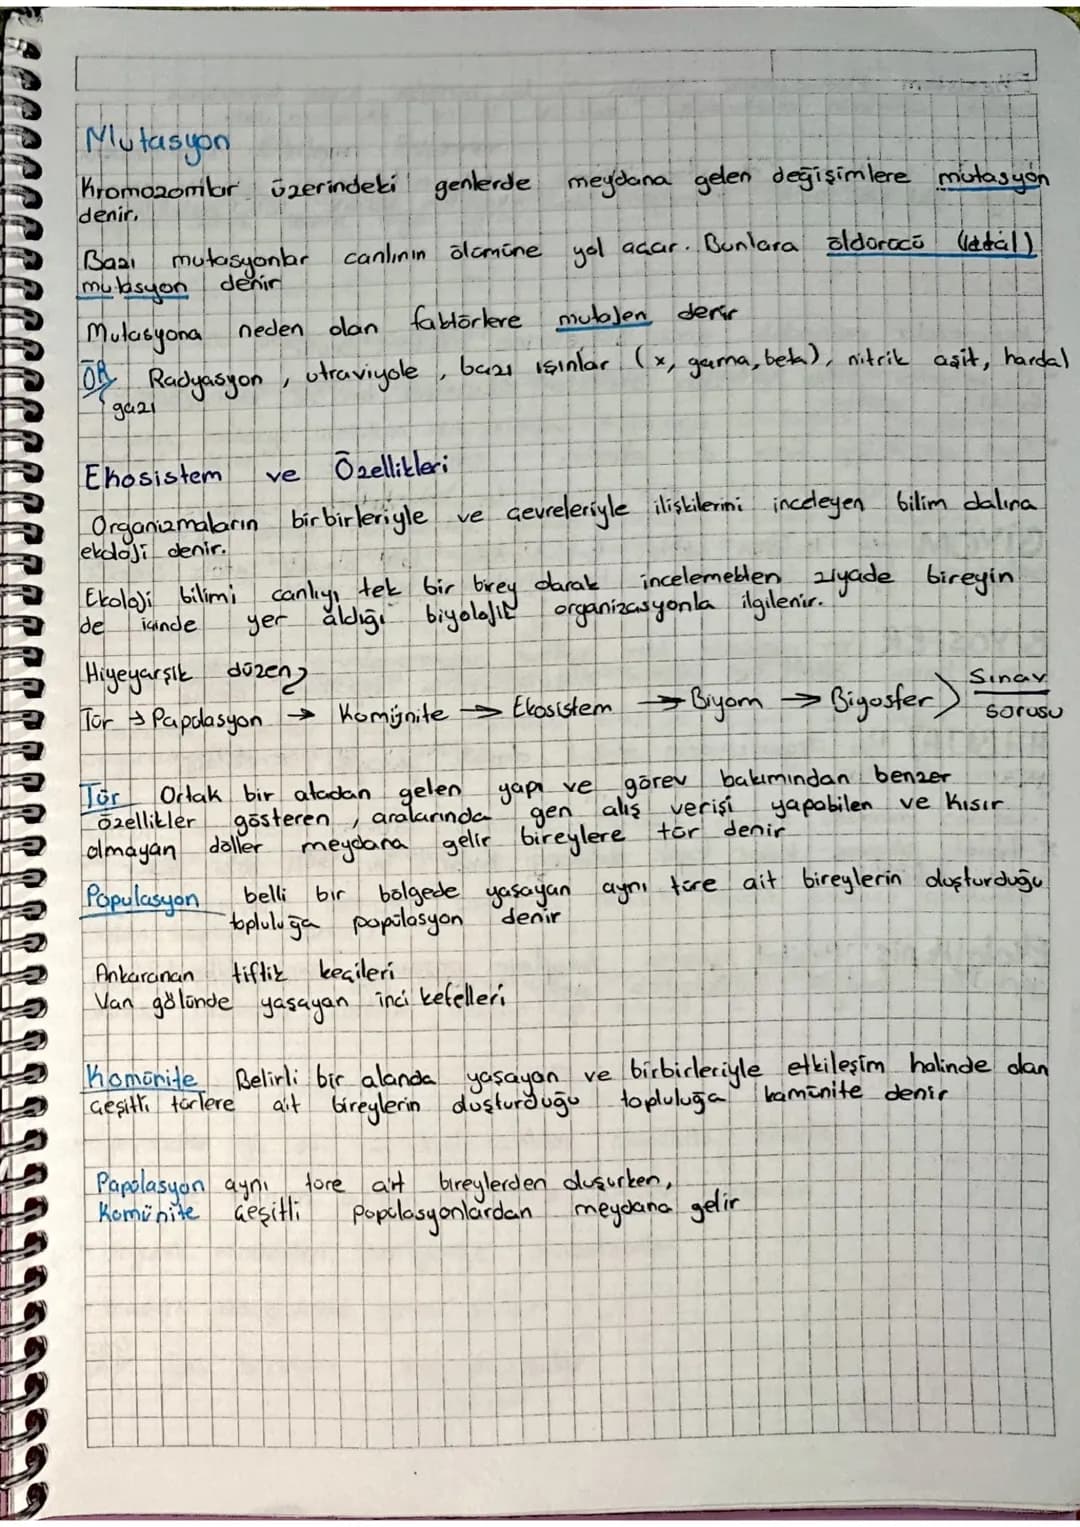 Mutasyon
Kromozomlar üzerindeki genlerde meydana gelen değişimlere mutasyon
denir.
Bazı mutasyonlar canlının ölümüne yol açar. Bunlara öldürücü (letal)
mutasyon denir
Mutasyona neden olan faktörlere mutajen denir
ÖR Radyasyon, utraviyole, bazı ışınlar (x, gama, beta), nitrik asit, hardal
gazı
Ekosistem ve Özellikleri
Organizmaların birbirleriyle ve çevreleriyle ilişkilerini inceleyen bilim dalına
ekoloji denir.
Ekoloji bilimi canlıyı tek bir birey olarak incelemekten ziyade bireyin
de içinde yer aldığı biyolojik organizasyonla ilgilenir.
Hiyeyarşik düzen
Tür → Papülasyon → Komünite → Ekosistem → Biyom → Biyosfer) Sınav
sorusu
Tür Ortak bir atadan gelen yapı ve görev bakımından benzer
özellikler gösteren, aralarında gen alış verişi yapabilen ve kısır
olmayan döller meydana gelir bireylere tür denir
Populasyon belli bir bölgede yaşayan aynı türe ait bireylerin oluşturduğu
topluluğa popülasyon denir
Ankaranan tiftik keçileri
Van gölünde yaşayan inci kefelleri
Komünite Belirli bir alanda yaşayan ve birbirleriyle etkileşim halinde olan
çeşitli türlere ait bireylerin oluşturduğu topluluğa kamünite denir
Papülasyon aynı türe ait bireylerden oluşurken,
Komünite çeşitli popülasyonlardan meydana gelir